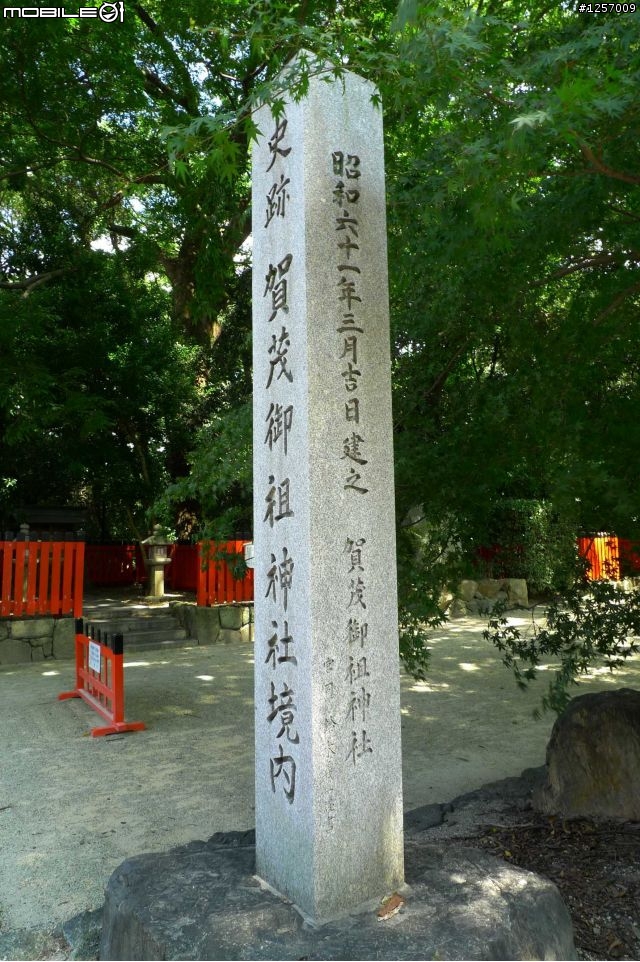 MOBILE01
#1257009
史跡 賀茂御祖神社境内
昭和六十一年三月吉日建之 賀茂御祖神社